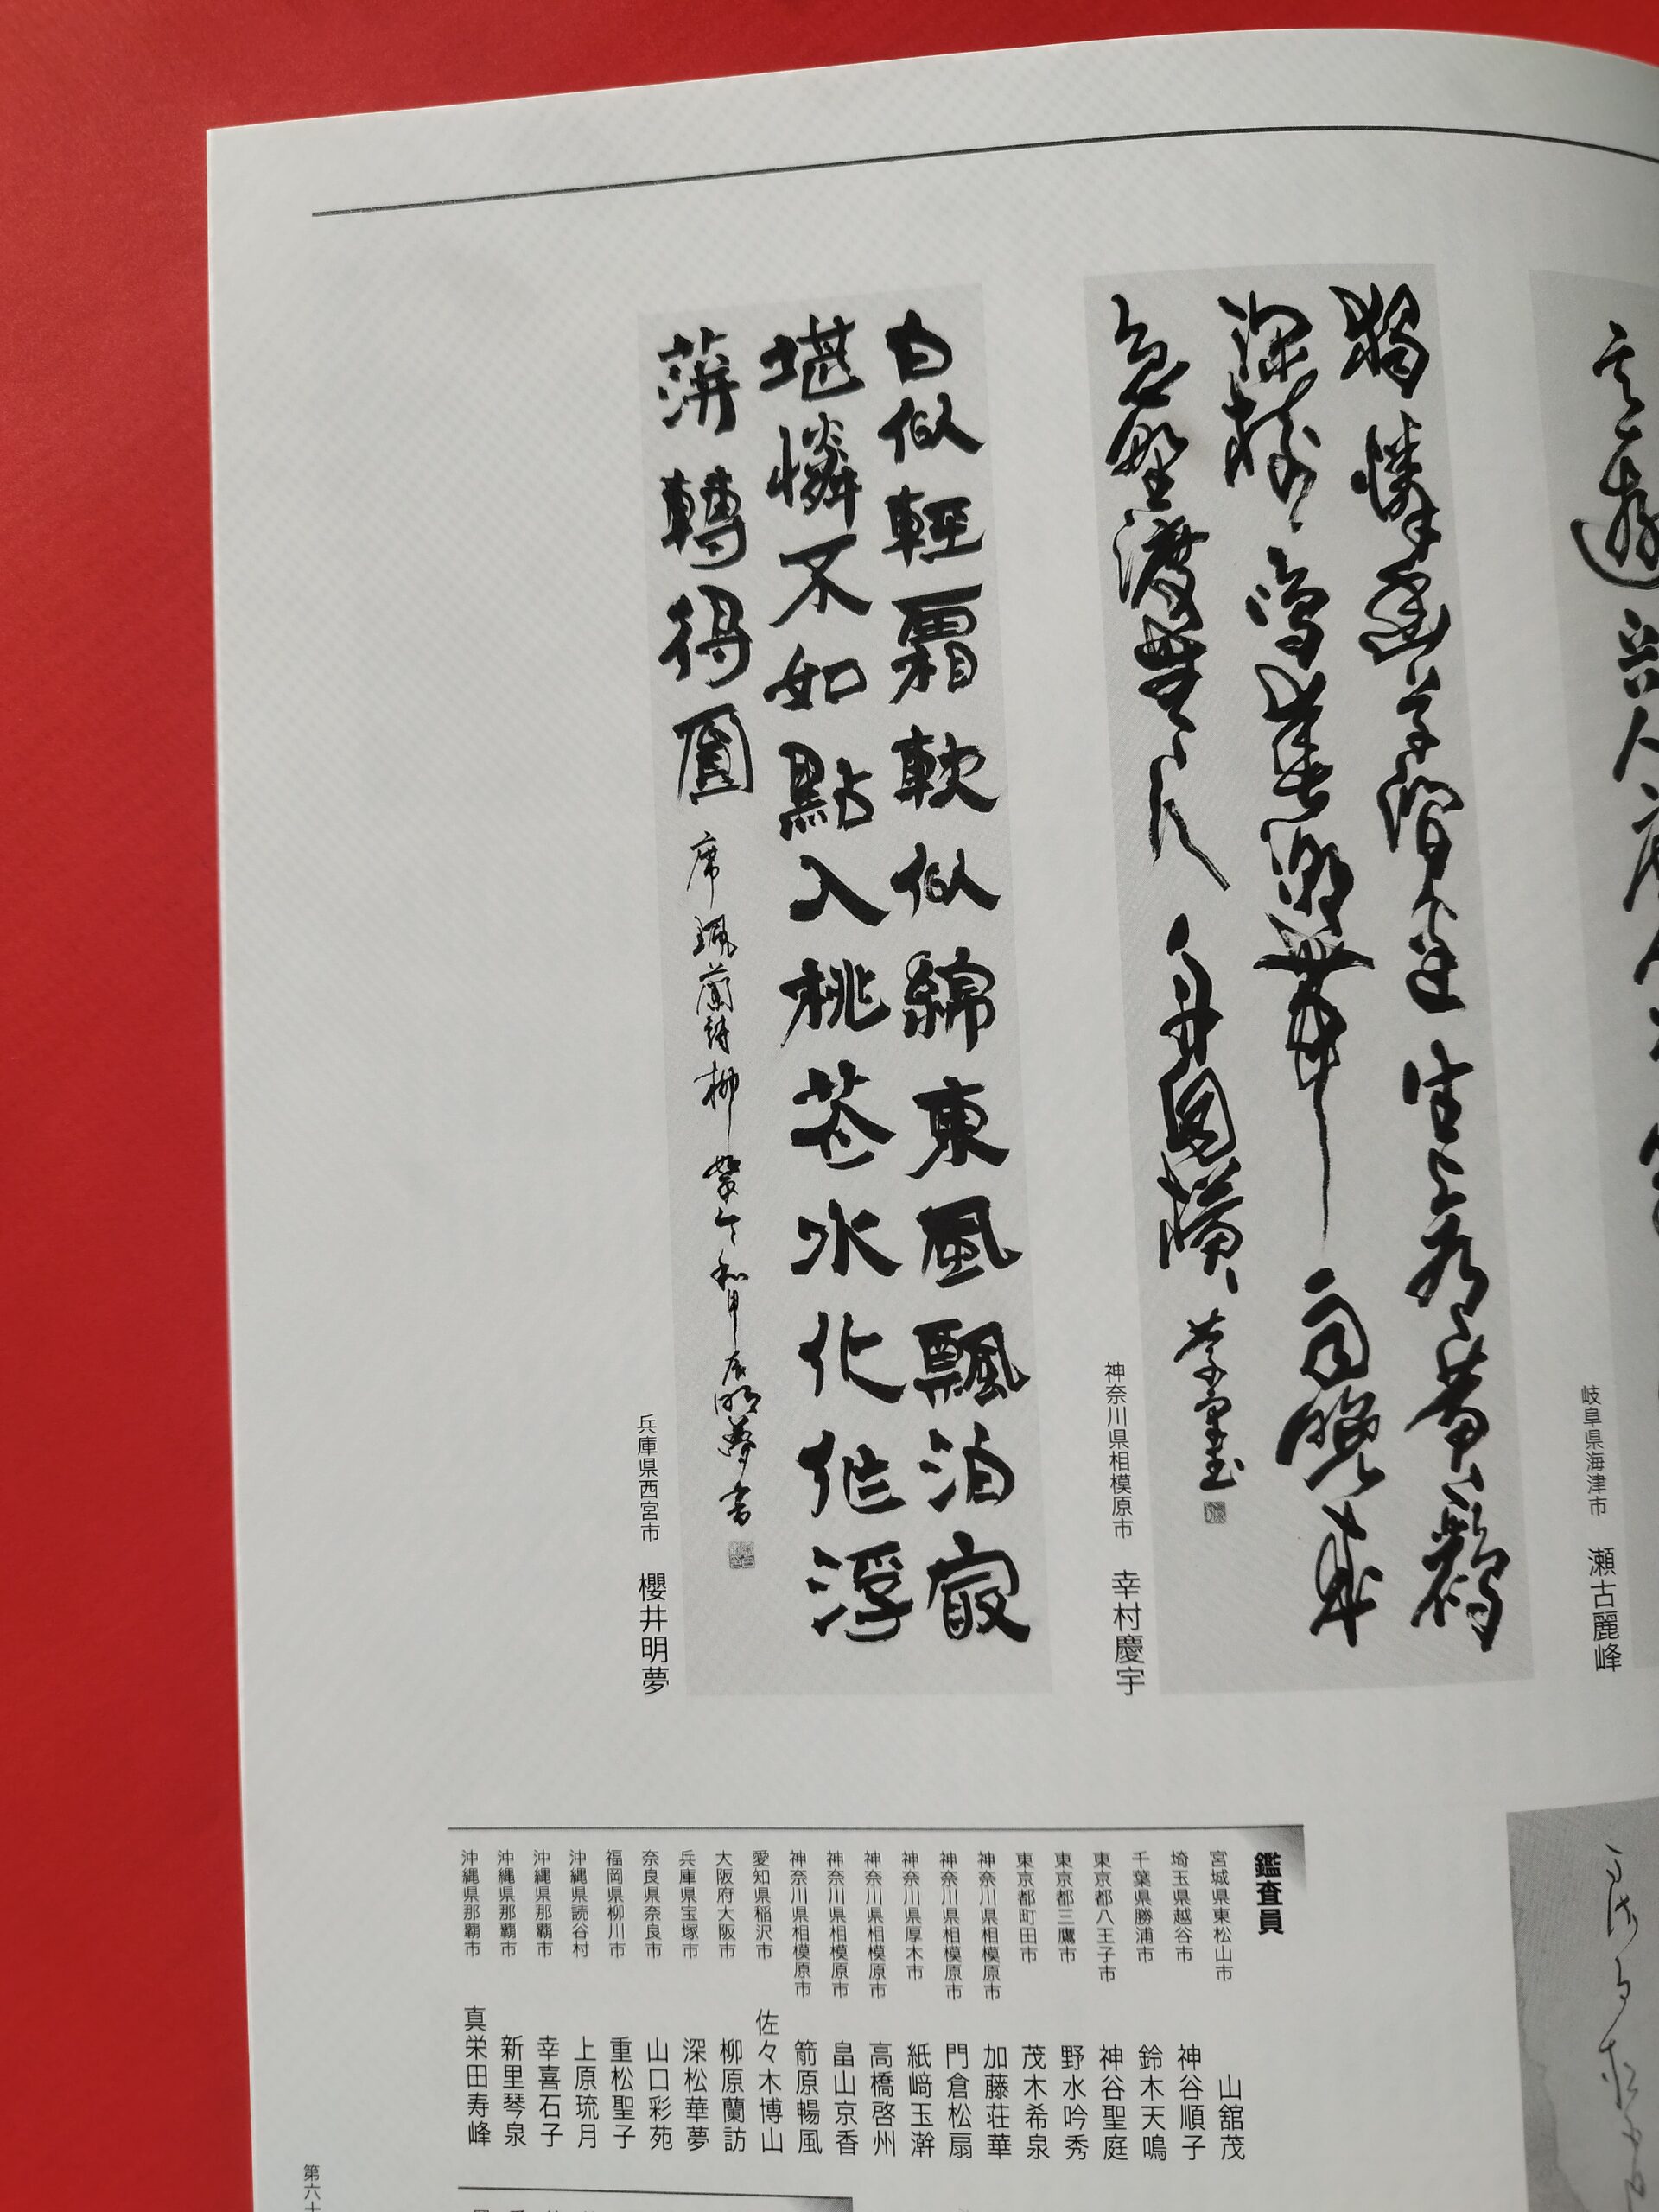 岐阜県海津市 瀬古麗峰
獨憐幽草澗邊生上有黄鸝
深樹鳴春潮帶雨晩来
急野渡無人舟自横
神奈川県相模原市 幸村慶宇
白似輕霜軟似綿東風飄泊最
堪憐不如點入桃花水化作浮
萍轉得圓 席珮蘭詩柳絮 令和甲辰明夢書
兵庫県西宮市 櫻井明夢
鑑査員
宮城県東松山市 山舘茂
埼玉県越谷市 神谷順子
千葉県勝浦市 鈴木天鳴
東京都八王子市 神谷聖庭
東京都三鷹市 野水吟秀
東京都町田市 茂木希泉
神奈川県相模原市 加藤荘華
神奈川県相模原市 門倉松扇
神奈川県厚木市 紙﨑玉澣
神奈川県相模原市 高橋啓州
神奈川県相模原市 畠山京香
神奈川県相模原市 箭原暢風
愛知県稲沢市 佐々木博山
大阪府大阪市 柳原蘭訪
兵庫県宝塚市 深松華夢
奈良県奈良市 山口彩苑
福岡県柳川市 重松聖子
沖縄県読谷村 上原琉月
沖縄県那覇市 幸喜石子
沖縄県那覇市 新里琴泉
沖縄県那覇市 真栄田寿峰
第六十